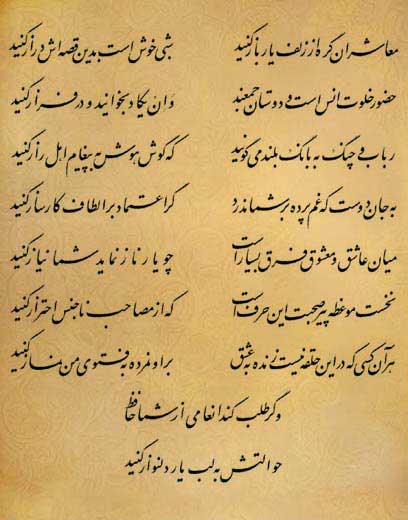 معاشران گره از زلف یار باز کنید شبی خوش است بدین قصه اش دراز کنید
حضور خلوت انس است و دوستان جمعند وان یکاد بخوانید و در فراز کنید
رباب و چنگ به بانگ بلند می گویند که گوش هوش به پیغام اهل راز کنید
به جان دوست که غم پرده بر شما ندرد گر اعتماد بر الطاف کارساز کنید
میان عاشق و معشوق فرق بسیار است چو یار ناز نماید شما نیاز کنید
نخست موعظه پیر صحبت این حرف است که از مصاحب ناجنس احتراز کنید
هر آن کسی که در این حلقه نیست زنده به عشق بر او نمرده به فتوی من نماز کنید
وگر طلب کند انعامی از شما حافظ
حوالتش به لب یار دلنواز کنید